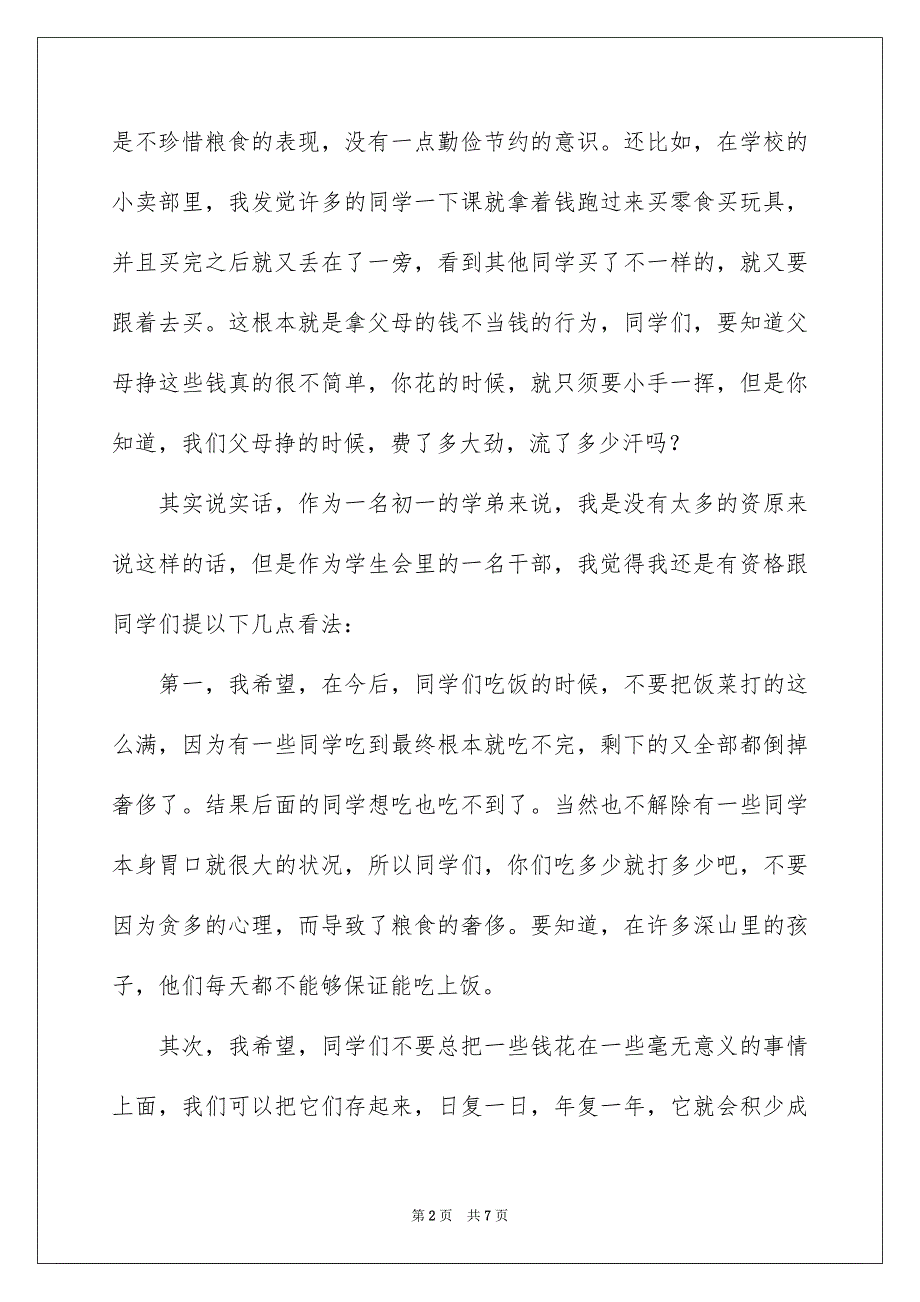 是不珍惜粮食的表现，没有一点勤俭节约的意识。还比如，在学校的
小卖部里，我发觉许多的同学一下课就拿着钱跑过来买零食买玩具，
并且买完之后就又丢在了一旁，看到其他同学买了不一样的，就又要
跟着去买。这根本就是拿父母的钱不当钱的行为，同学们，要知道父
母挣这些钱真的很不简单，你花的时候，就只须要小手一挥，但是你
知道，我们父母挣的时候，费了多大劲，流了多少汗吗？
其实说实话，作为一名初一的学弟来说，我是没有太多的资原来
说这样的话，但是作为学生会里的一名干部，我觉得我还是有资格跟
同学们提以下几点看法：
第一，我希望，在今后，同学们吃饭的时候，不要把饭菜打的这
么满，因为有一些同学吃到最终根本就吃不完，剩下的又全部都倒掉
奢侈了。结果后面的同学想吃也吃不到了。当然也不解除有一些同学
本身胃口就很大的状况，所以同学们，你们吃多少就打多少吧，不要
因为贪多的心理，而导致了粮食的奢侈。要知道，在许多深山里的孩
子，他们每天都不能够保证能吃上饭。
其次，我希望，同学们不要总把一些钱花在一些毫无意义的事情
上面，我们可以把它们存起来，日复一日，年复一年，它就会积少成
第 2 页 共 7 页